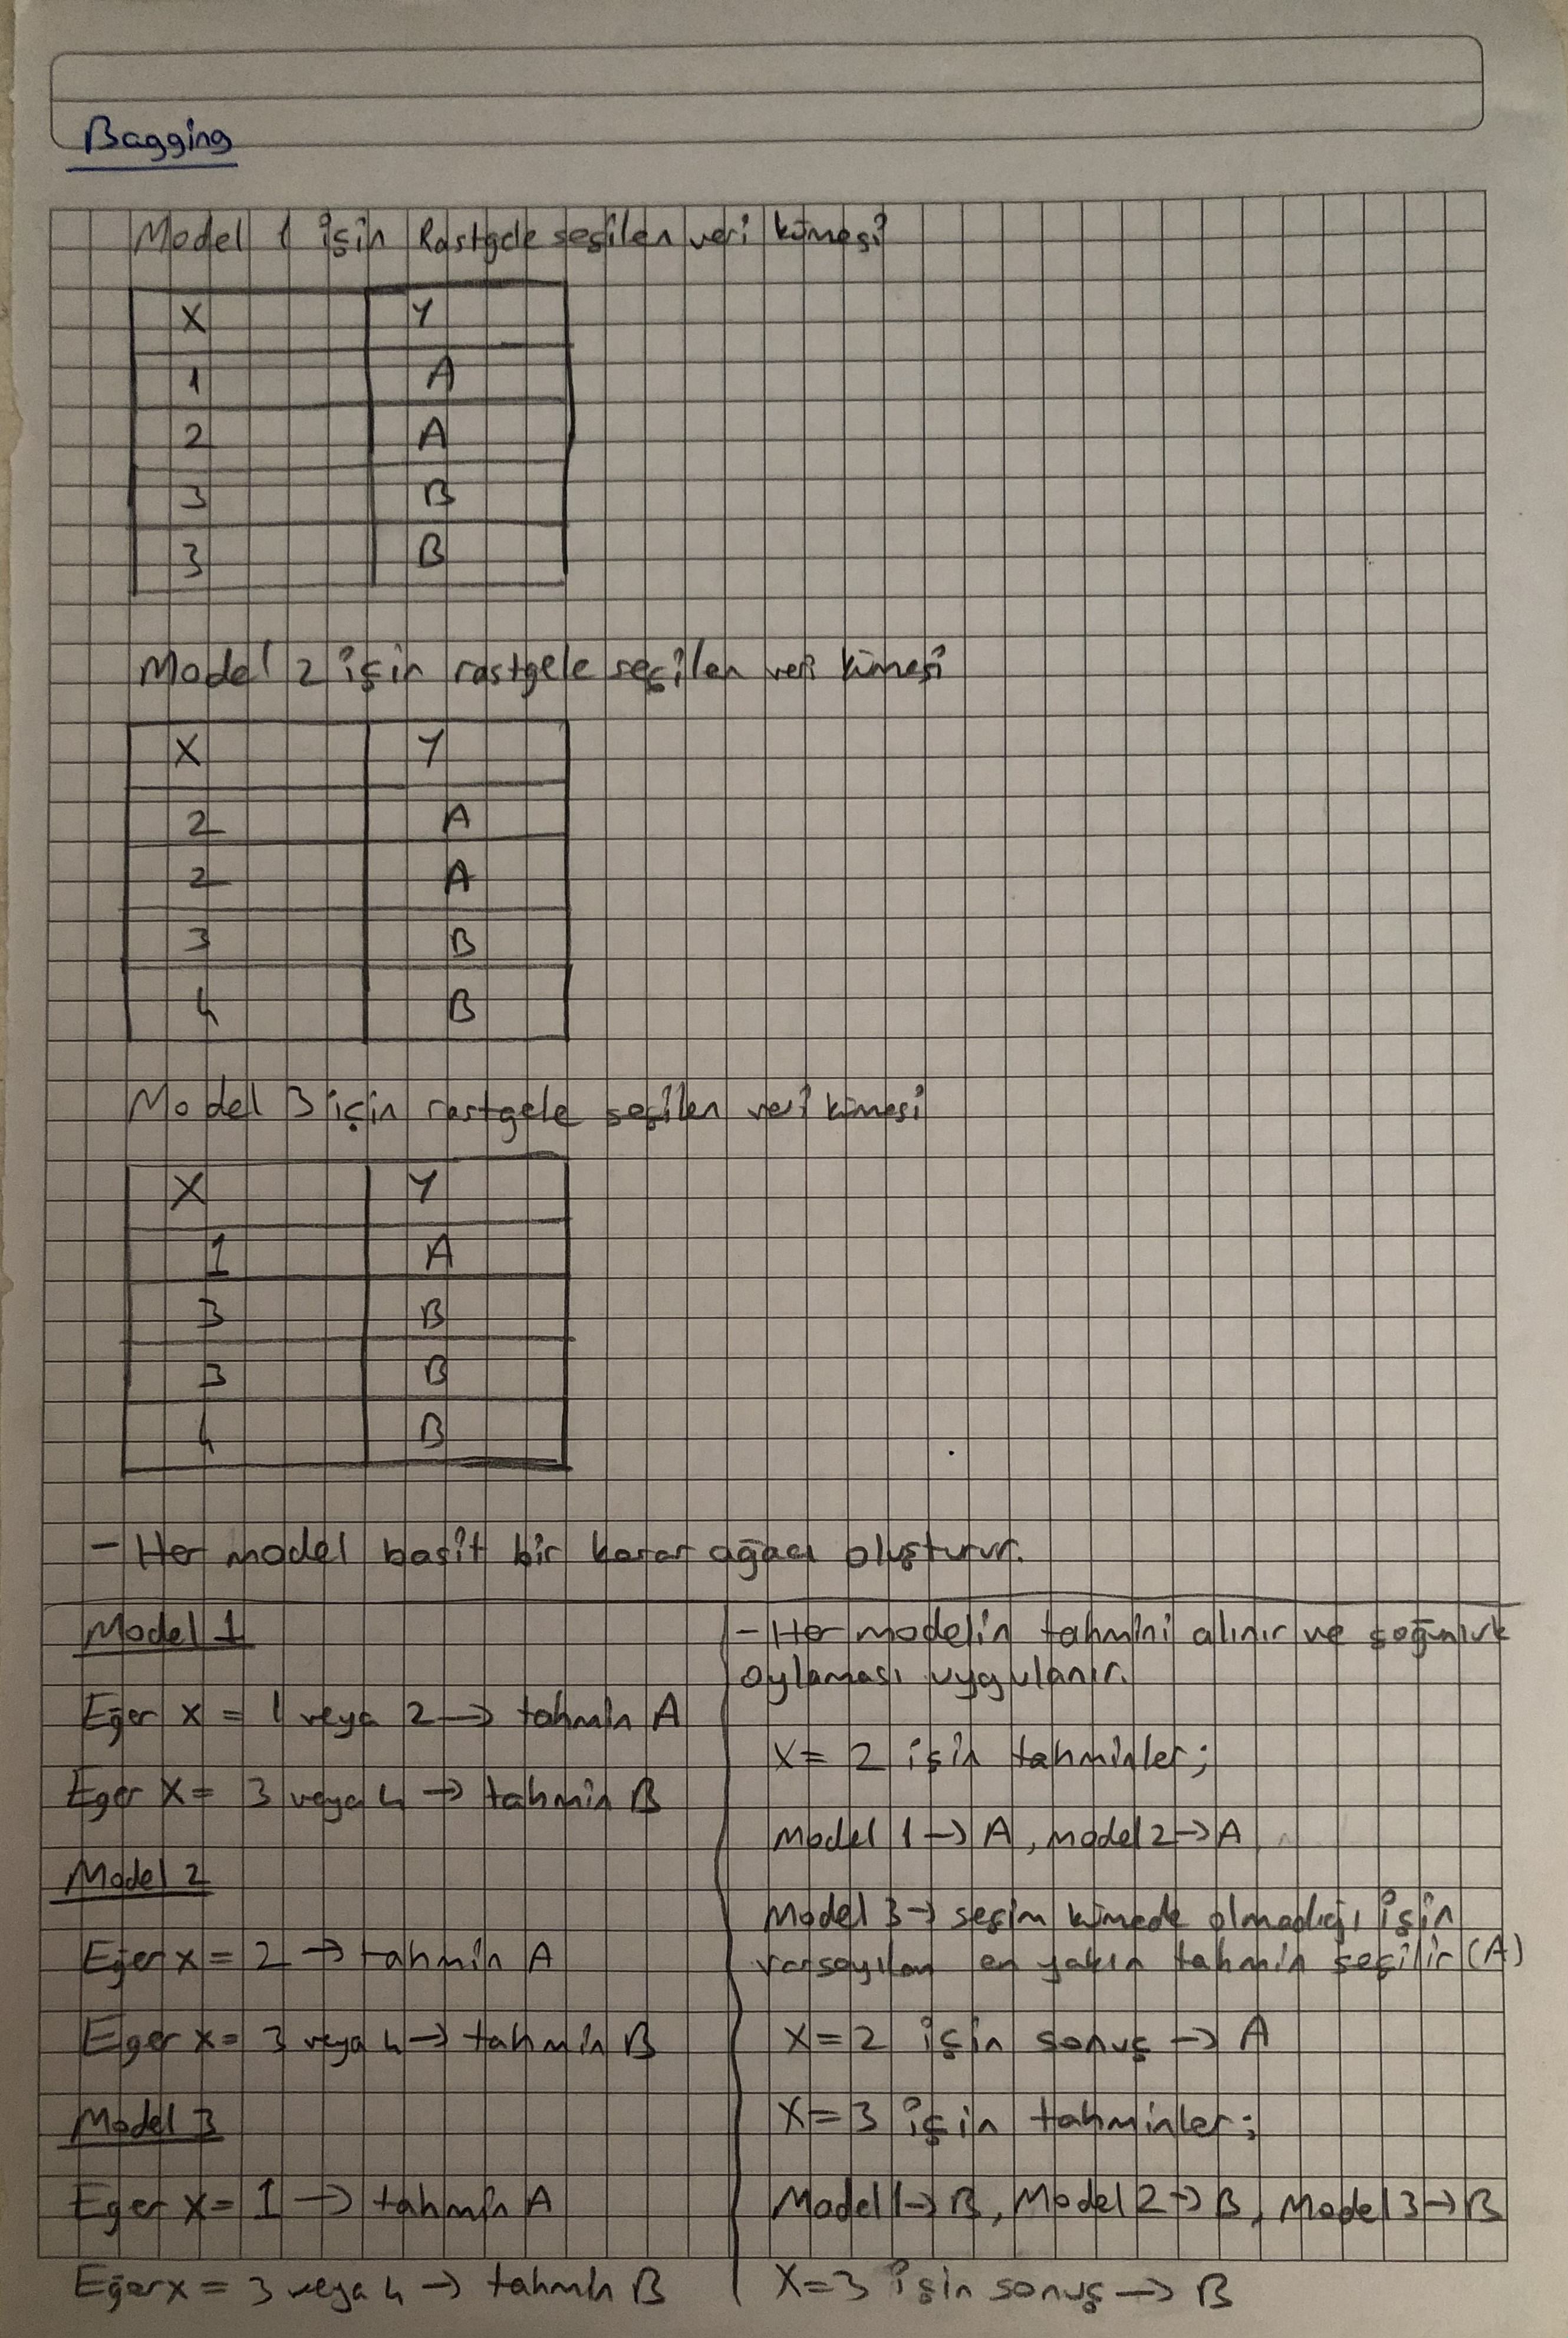 Bagging
Model 1 için Rastgele seçilen veri kümesi
X Y
1 A
2 A
3 B
3 B
Model 2 için rastgele seçilen veri kümesi
X Y
2 A
2 A
3 B
4 B
Model 3 için rastgele seçilen veri kümesi
X Y
1 A
3 B
3 B
4 B
- Her model basit bir karar ağacı oluşturur.
Model 1
Eğer x = 1 veya 2 → tahmin A
Eğer X = 3 veya 4 → tahmin B
Model 2
Eğer x = 2 → tahmin A
Eğer x = 3 veya 4 → tahmin B
Model 3
Eğer x = 1 → tahmin A
Eğer x = 3 veya 4 → tahmin B
- Her modelin tahmini alınır ve çoğunluk
oylaması uygulanır.
X = 2 için tahminler;
Model 1 → A, model 2 → A
Model 3 → seçim kümede olmadığı için
varsayılan en yakın tahmin seçilir (A)
X = 2 için sonuç → A
X = 3 için tahminler;
Model 1 → B, Model 2 → B, Model 3 → B
X = 3 için sonuç → B